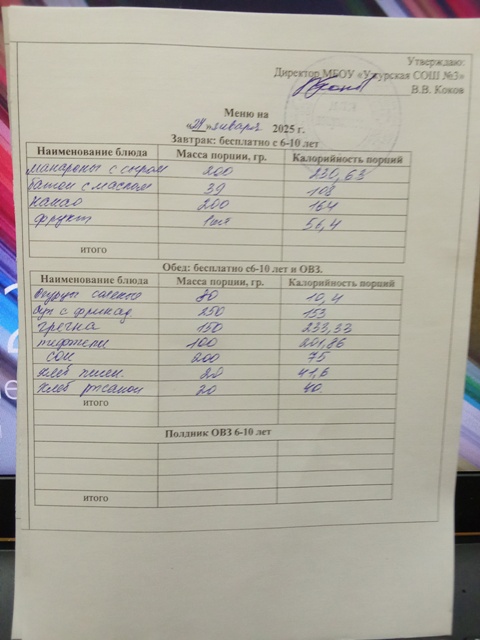 Утверждаю:
Директор МБОУ «Ужурская СОШ №3»
В.В. Коков
Меню на
«24» января 2025 г.
Завтрак: бесплатно с 6-10 лет
Наименование блюда Масса порции, гр. Калорийность порций
макароны с сыром 200 230,63
батон с маслом 39 108
какао 200 164
фрукт 1шт 56,4
итого
Обед: бесплатно с6-10 лет и ОВЗ.
Наименование блюда Масса порции, гр. Калорийность порций
огурцы соленые 10,4
суп с фрикад 250 153
гречка 150 233,33
тефтели 100 201,86
сок 200 75
хлеб пшен. 20 41,6
хлеб ржаной 20 40
итого
Полдник ОВЗ 6-10 лет
итого